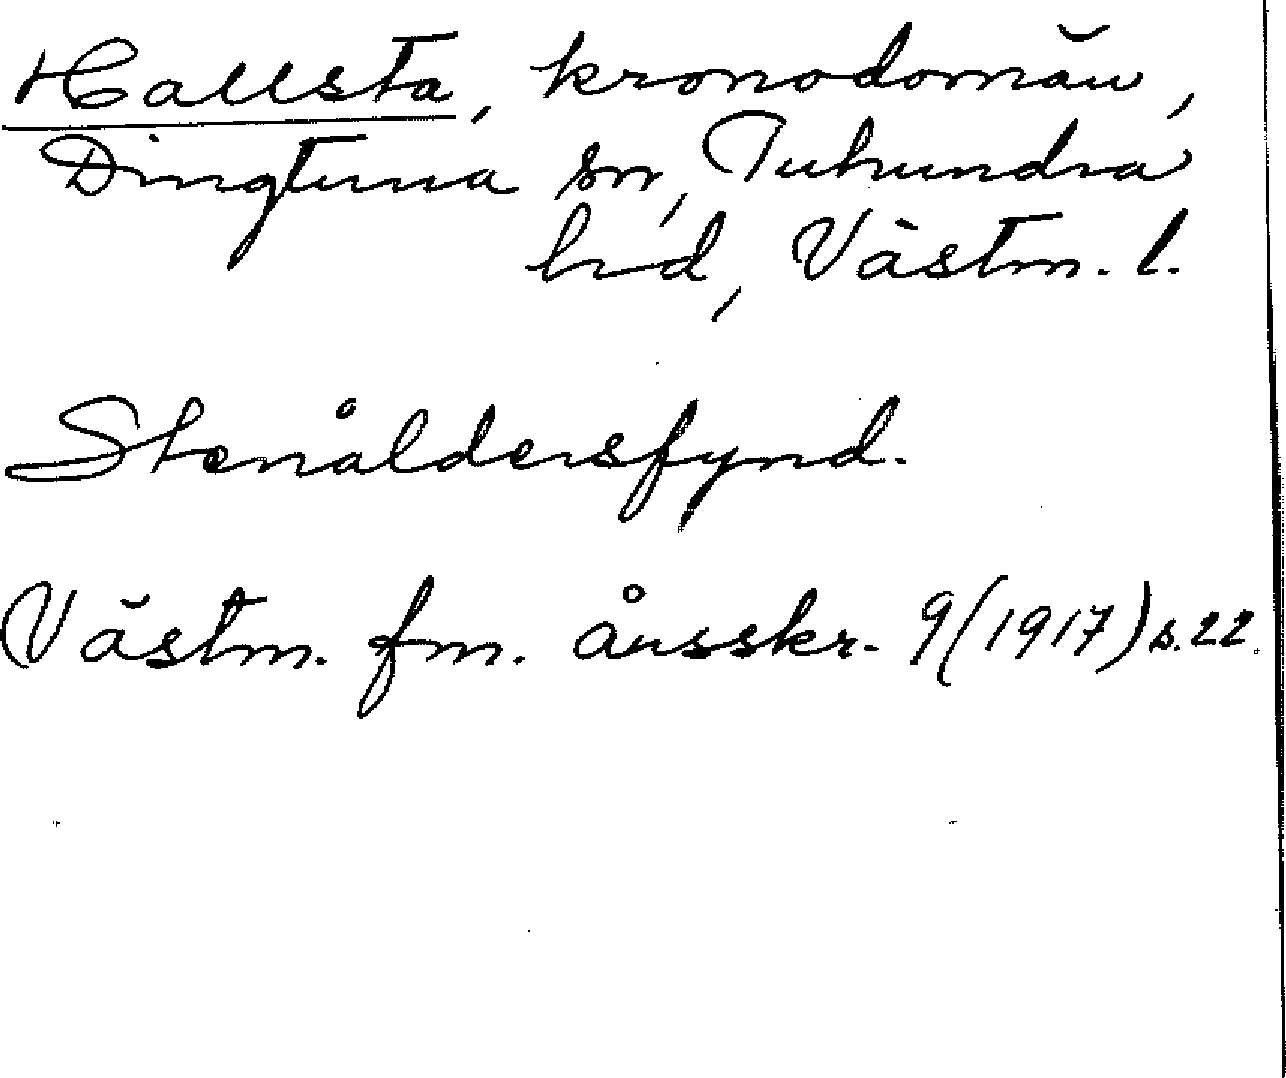 Hallsta, kronodomän,
Dingtuna sn, Tuhundra
hd, Västm. l.
Stenåldersfynd.
Västm. fm. årsskr. 9(1917)s.22.